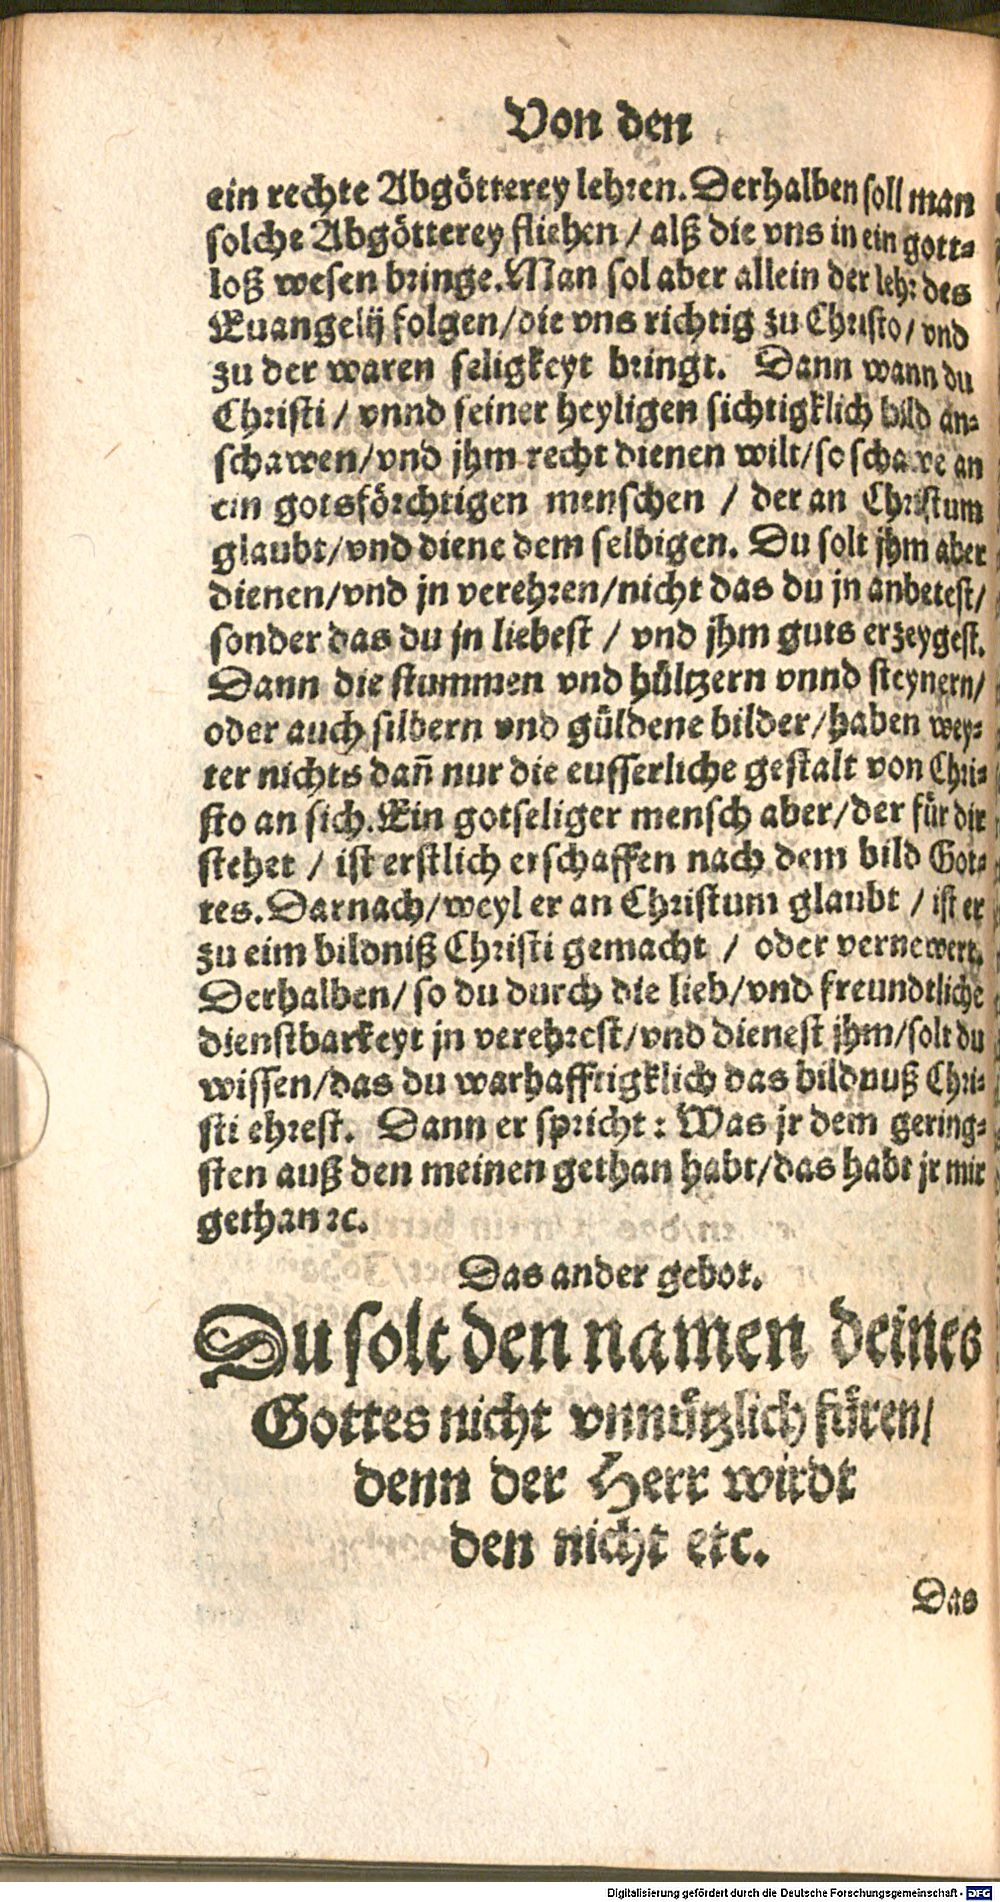 Von den
ein rechte Abgötterey lehren. Derhalben soll man
solche Abgötterey fliehen / alß die vns in ein gott-
loß wesen bringe. Man sol aber allein der lehr des
Euangelij folgen / die vns richtig zu Christo / vnd
zu der waren seligkeyt bringt. Dann wann du
Christi / vnnd seiner heyligen sichtigklich bild an-
schawen / vnd jhm recht dienen wilt / so schawe an
ein gotsförchtigen menschen / der an Christum
glaubt / vnd diene dem selbigen. Du solt jhm aber
dienen / vnd jn verehren / nicht das du jn anbetest /
sonder das du jn liebest / vnd jhm guts erzeygest.
Dann die stummen vnd hültzern vnnd steynern /
oder auch silbern vnd güldene bilder / haben wey-
ter nichts dañ nur die eusserliche gestalt von Chri-
sto an sich. Ein gotseliger mensch aber / der für dir
stehet / ist erstlich erschaffen nach dem bild Got-
tes. Darnach / weyl er an Christum glaubt / ist er
zu eim bildniß Christi gemacht / oder vernewert.
Derhalben / so du durch die lieb / vnd freundtliche
dienstbarkeyt jn verehrest / vnd dienest jhm / solt du
wissen / das du warhafftigklich das bildnuß Chri-
sti ehrest. Dann er spricht : Was jr dem gering-
sten auß den meinen gethan habt / das habt jr mir
gethan ꝛc.
Das ander gebot.
Du solt den namen deines
Gottes nicht vnnützlich füren /
denn der Herr wirdt
den nicht etc.
Das
Digitalisierung gefördert durch die Deutsche Forschungsgemeinschaft - DFG